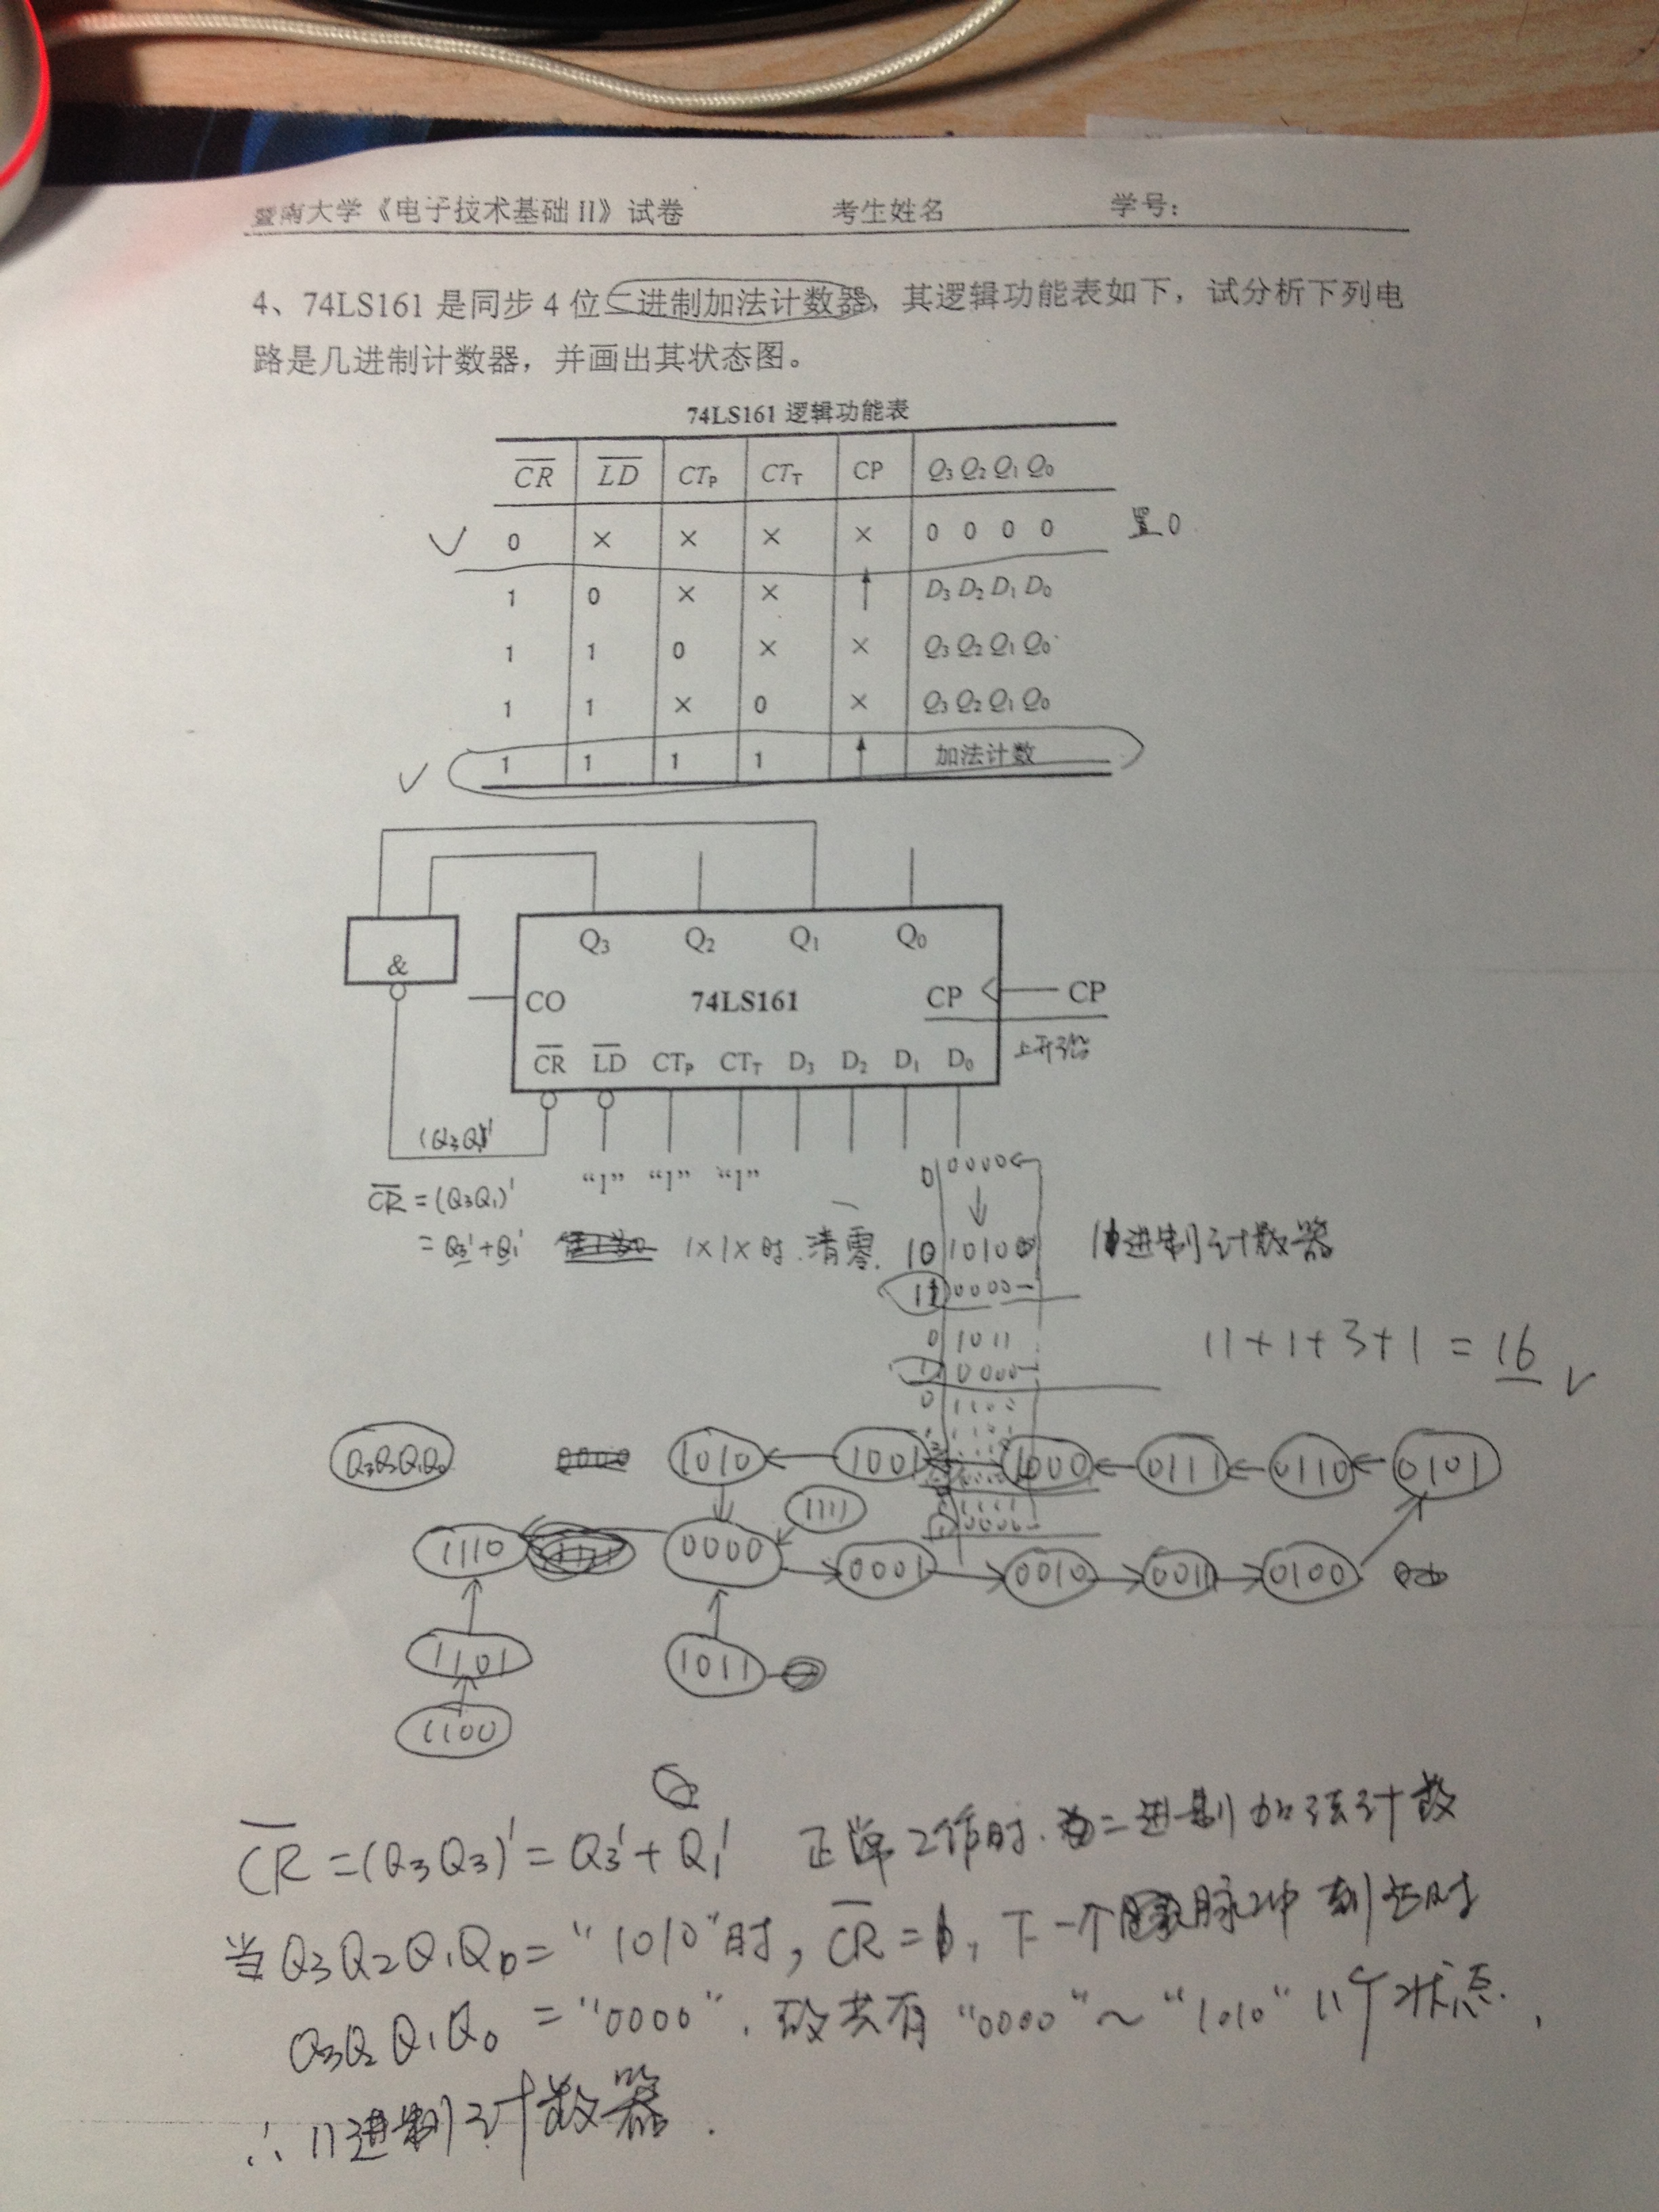 暨南大学《电子技术基础 II》试卷 考生姓名 学号:
4、74LS161 是同步 4 位二进制加法计数器，其逻辑功能表如下，试分析下列电
路是几进制计数器，并画出其状态图。
74LS161 逻辑功能表
C̅R̅ L̅D̅ CTP CTT CP Q3 Q2 Q1 Q0
0 × × × × 0 0 0 0 置0
1 0 × × ↑ D3 D2 D1 D0
1 1 0 × × Q3 Q2 Q1 Q0
1 1 × 0 × Q3 Q2 Q1 Q0
1 1 1 1 ↑ 加法计数
Q3 Q2 Q1 Q0
&
CO 74LS161 CP CP
C̅R̅ L̅D̅ CTP CTT D3 D2 D1 D0 上升沿
(Q3Q1)'
0 0000
C̅R̅ = (Q3Q1)' "1" "1" "1"
= Q3' + Q1' 1×1×时.清零. 10 1010 11进制计数器
11 0000
0 1011
11+1+3+1=16
1 0000
0 1100
Q3Q2Q1Q0 0000 1010 1001 1000 0111 0110 0101
1111
1 0000
1110 0000 0001 0010 0011 0100
1101 1011
1100
C̅R̅ = (Q3Q3)' = Q3' + Q1' 正常工作时.为二进制加法计数
当Q3Q2Q1Q0 = "1010"时, C̅R̅ = 下一个脉冲到达时
Q3Q2Q1Q0 = "0000". 故共有 "0000" ~ "1010" 11个状态.
∴ 11进制计数器.